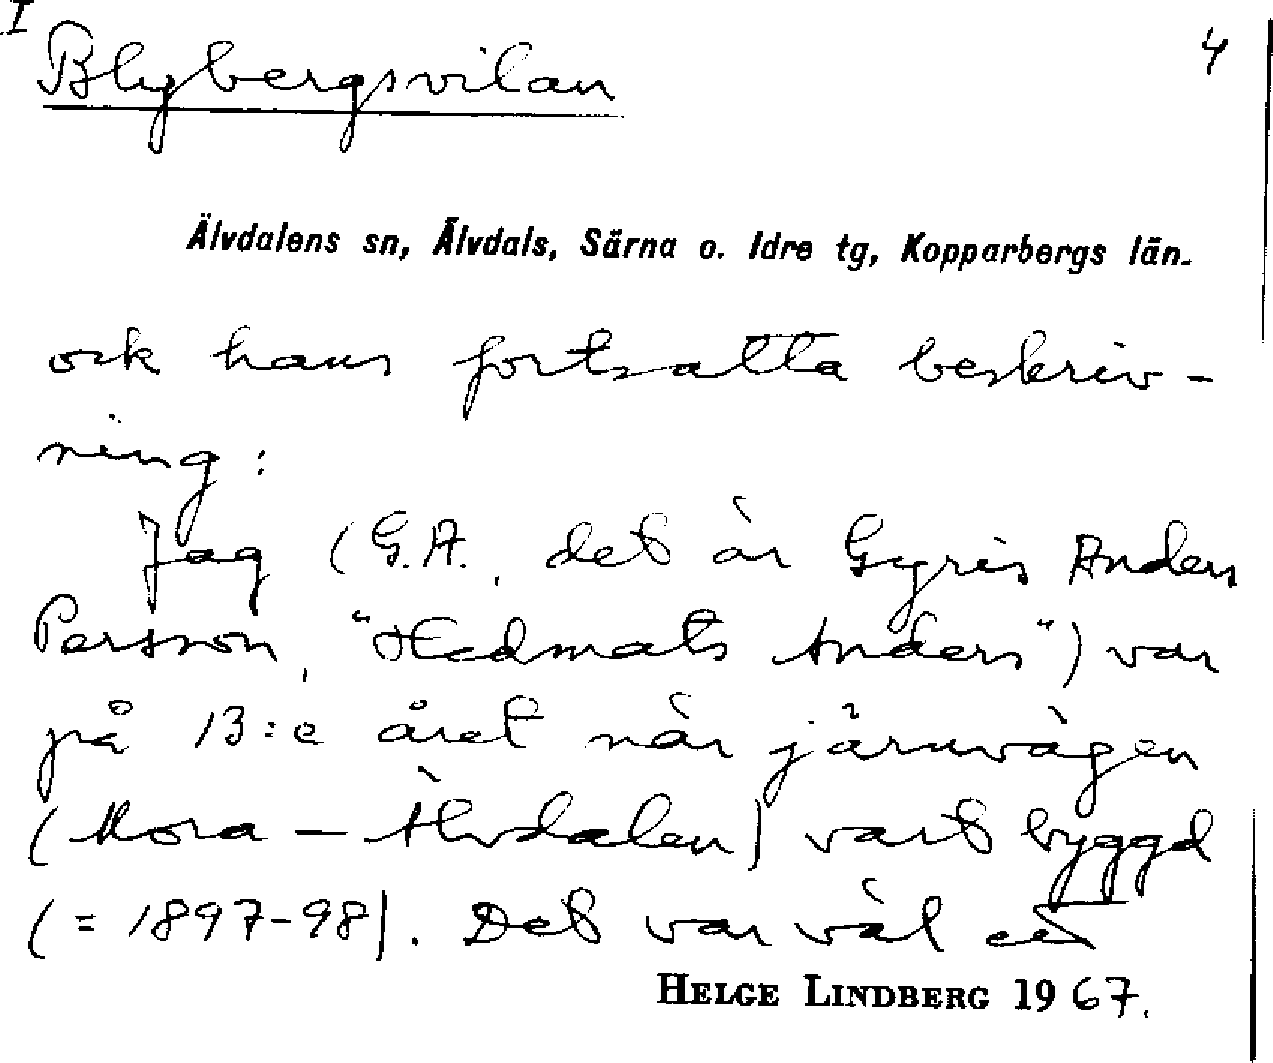 I
Blybergsvilan 4
Älvdalens sn, Älvdals, Särna o. Idre tg, Kopparbergs län.
ock hans fortsatta beskriv-
ning:
Jag (G.A., det är Gyris Anders
Persson, "Hedmats Anders") var
på 13:e året när järnvägen
(Mora – Älvdalen) vart byggd
(= 1897-98). Det var väl ett
HELGE LINDBERG 1967.